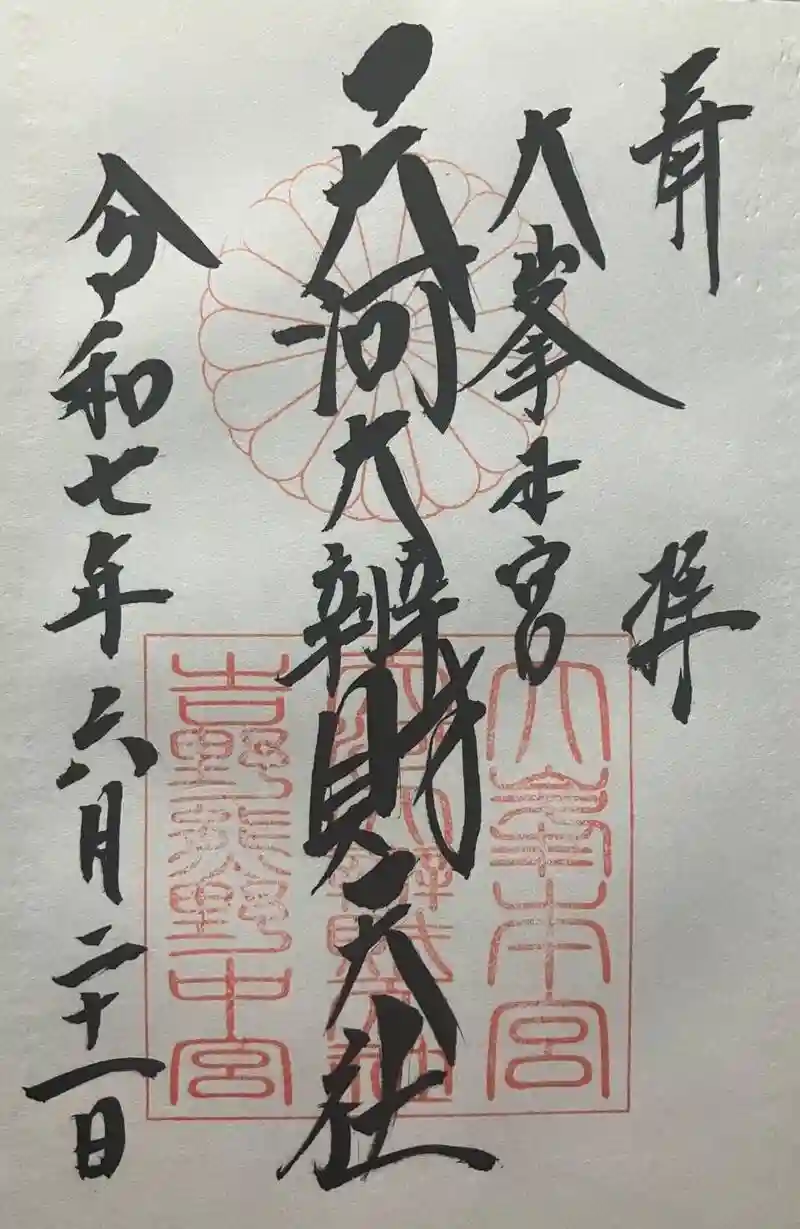 奉拝
大峯本宮
天河大辨財天社
令和七年六月二十一日
大峯本宮
天河大辨財天神
吉野熊野中宮